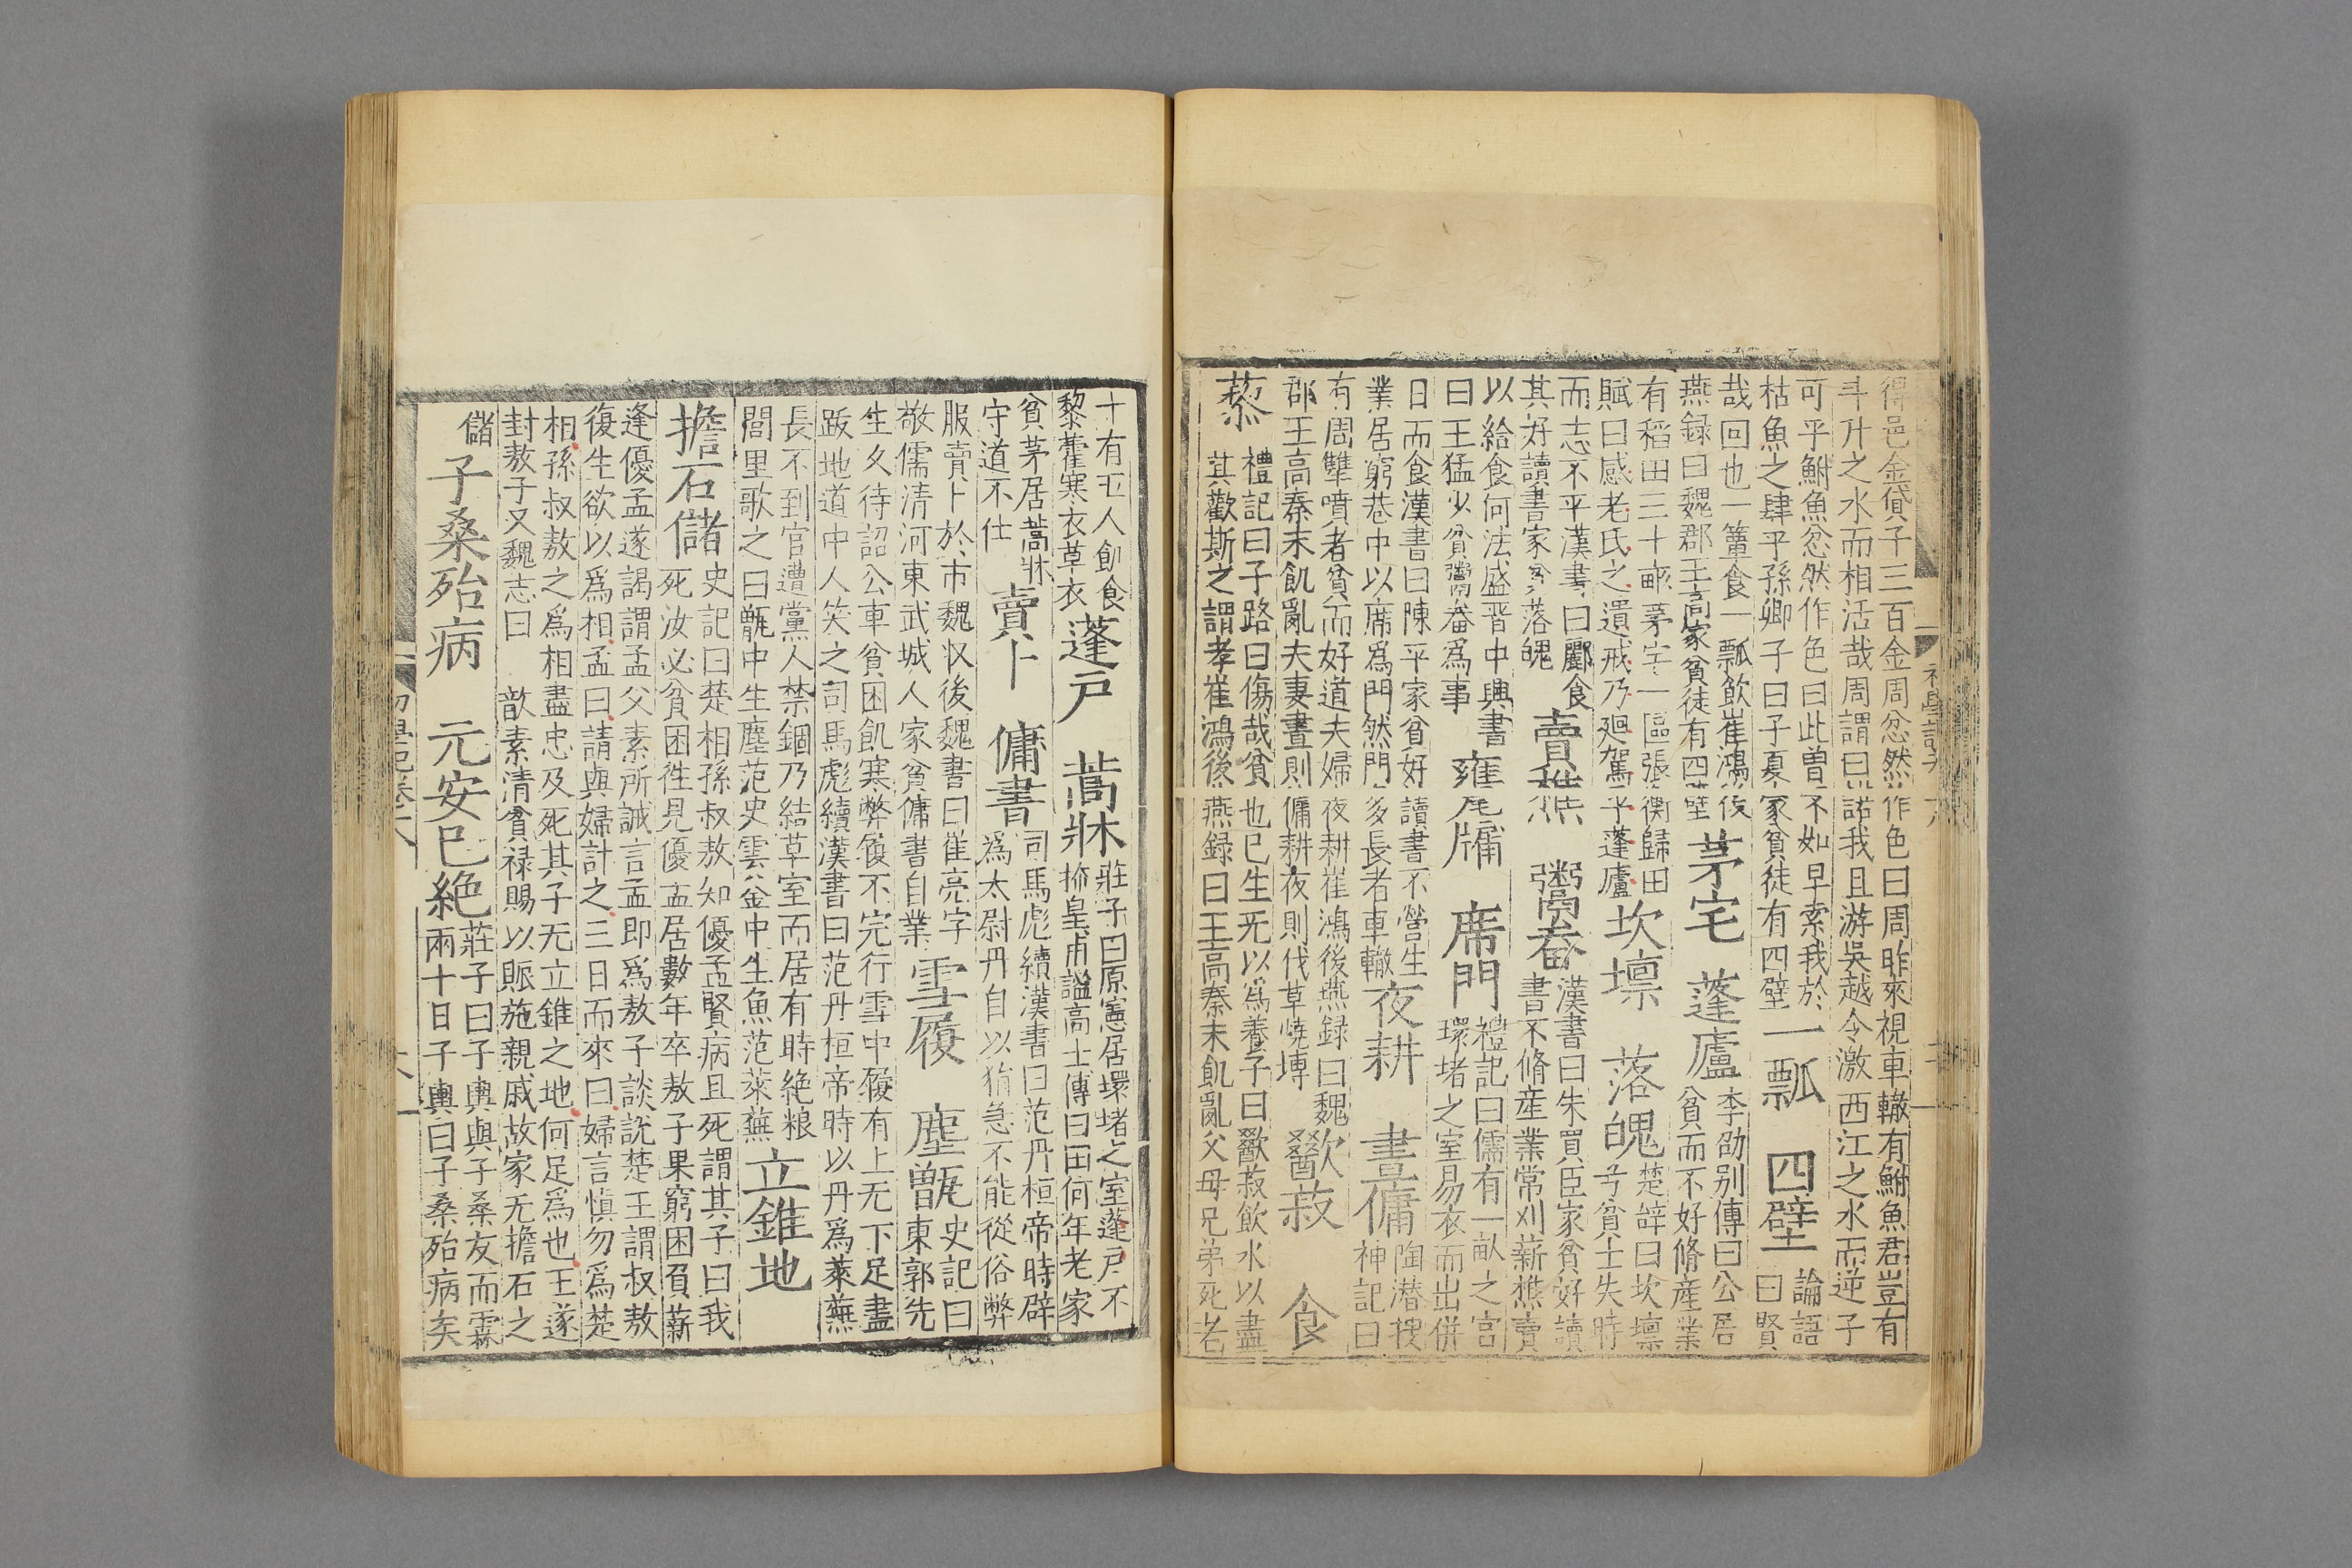 得邑金貸子三百金周忿然作色曰周昨來視車轍有鮒魚君豈有
斗升之水而相活哉周謂曰諾我且游吳越令激西江之水而逆子
可乎鮒魚忿然作色曰此曾不如早索我於
枯魚之肆乎孫卿子曰子夏家貧徒有四壁
一瓢 四壁
論語
曰賢
哉回也一簞食一瓢飲崔鴻後
燕録曰魏郡王高家貧徒有四壁
茅宅 蓬廬
李劭别傳曰公居
貧而不好脩産業
有稻田三十畝茅宇一區張衡歸田
賦曰感老氏之遺戒乃廻駕乎蓬廬
坎壈 落魄
楚辞曰坎壈
兮貧士失時
而志不平漢書曰酈食
其好讀書家貧落魄
賣樵 鬻畚
漢書曰朱買臣家貧好讀
書不脩産業常刈薪樵賣
以給食何法盛晋中興書
曰王猛少貧鬻畚爲事
甕牖 席門
禮記曰儒有一畝之宫
環堵之室易衣而出併
日而食漢書曰陳平家貧好讀書不營生
業居窮巷中以席爲門然門多長者車轍
夜耕 晝傭
陶潜搜
神記曰
有周犨噴者貧而好道夫婦夜耕崔鴻後燕録曰魏
郡王高秦末飢亂夫妻晝則傭耕夜則伐草燒塼
歠菽 食
藜
禮記曰子路曰傷哉貧也已生无以爲養子曰歠菽飲水以盡
其歡斯之謂孝崔鴻後燕録曰王高秦末飢亂父母兄弟死者
十有五人飢食
藜藿寒衣草衣
蓬戸 蒿牀
莊子曰原憲居環堵之室蓬戸不
掩皇甫謐高士傳曰田何年老家
貧茅居蒿牀
守道不仕
賣卜 傭書
司馬彪續漢書曰范丹桓帝時辟
爲太尉丹自以狷急不能從俗弊
服賣卜於市魏収後魏書曰崔亮字
敬儒清河東武城人家貧傭書自業
雪履 塵甑
史記曰
東郭先
生久待詔公車貧困飢寒弊履不完行雪中履有上无下足盡
踐地道中人笑之司馬彪續漢書曰范丹桓帝時以丹爲萊蕪
長不到官遭黨人禁錮乃結草室而居有時絶粮
閭里歌之曰甑中生塵范史雲釜中生魚范萊蕪
立錐地
擔石儲
史記曰楚相孫叔敖知優孟賢病且死謂其子曰我
死汝必貧困徃見優孟居數年卒敖子果窮困負薪
逢優孟遂謁謂孟父素所誡言孟即爲敖子談説楚王謂叔敖
復生欲以爲相孟曰請與婦計之三日而來曰婦言慎勿爲楚
相孫叔敖之爲相盡忠及死其子无立錐之地何足爲也王遂
封敖子又魏志曰歆素清貧禄賜以賑施親戚故家无擔石之
儲
子桑殆病 元安已絶
莊子曰子輿與子桑友而霖
兩十日子輿曰子桑殆病矣